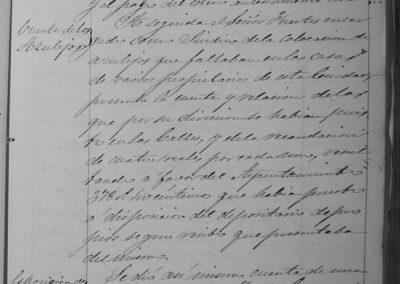 y el pago del
Cuenta de los
Azulejos
A seguida el Señor Fuertes encar
gado como Síndico de la colocacion de
azulejos que faltaban en las casas
de varios propietarios de esta Ciudad
presentó la cuenta y relacion de las
que por su division se habian pues
to en las Calles, y de la recaudacion
de cuatro reales por cada uno, resul
tando a favor del Ayuntamiento
378 r. centimos que habia puesto
a disposicion del depositario de pro
pios segun recibo que presentaba
del mismo.
Se dió asi mismo cuenta de una